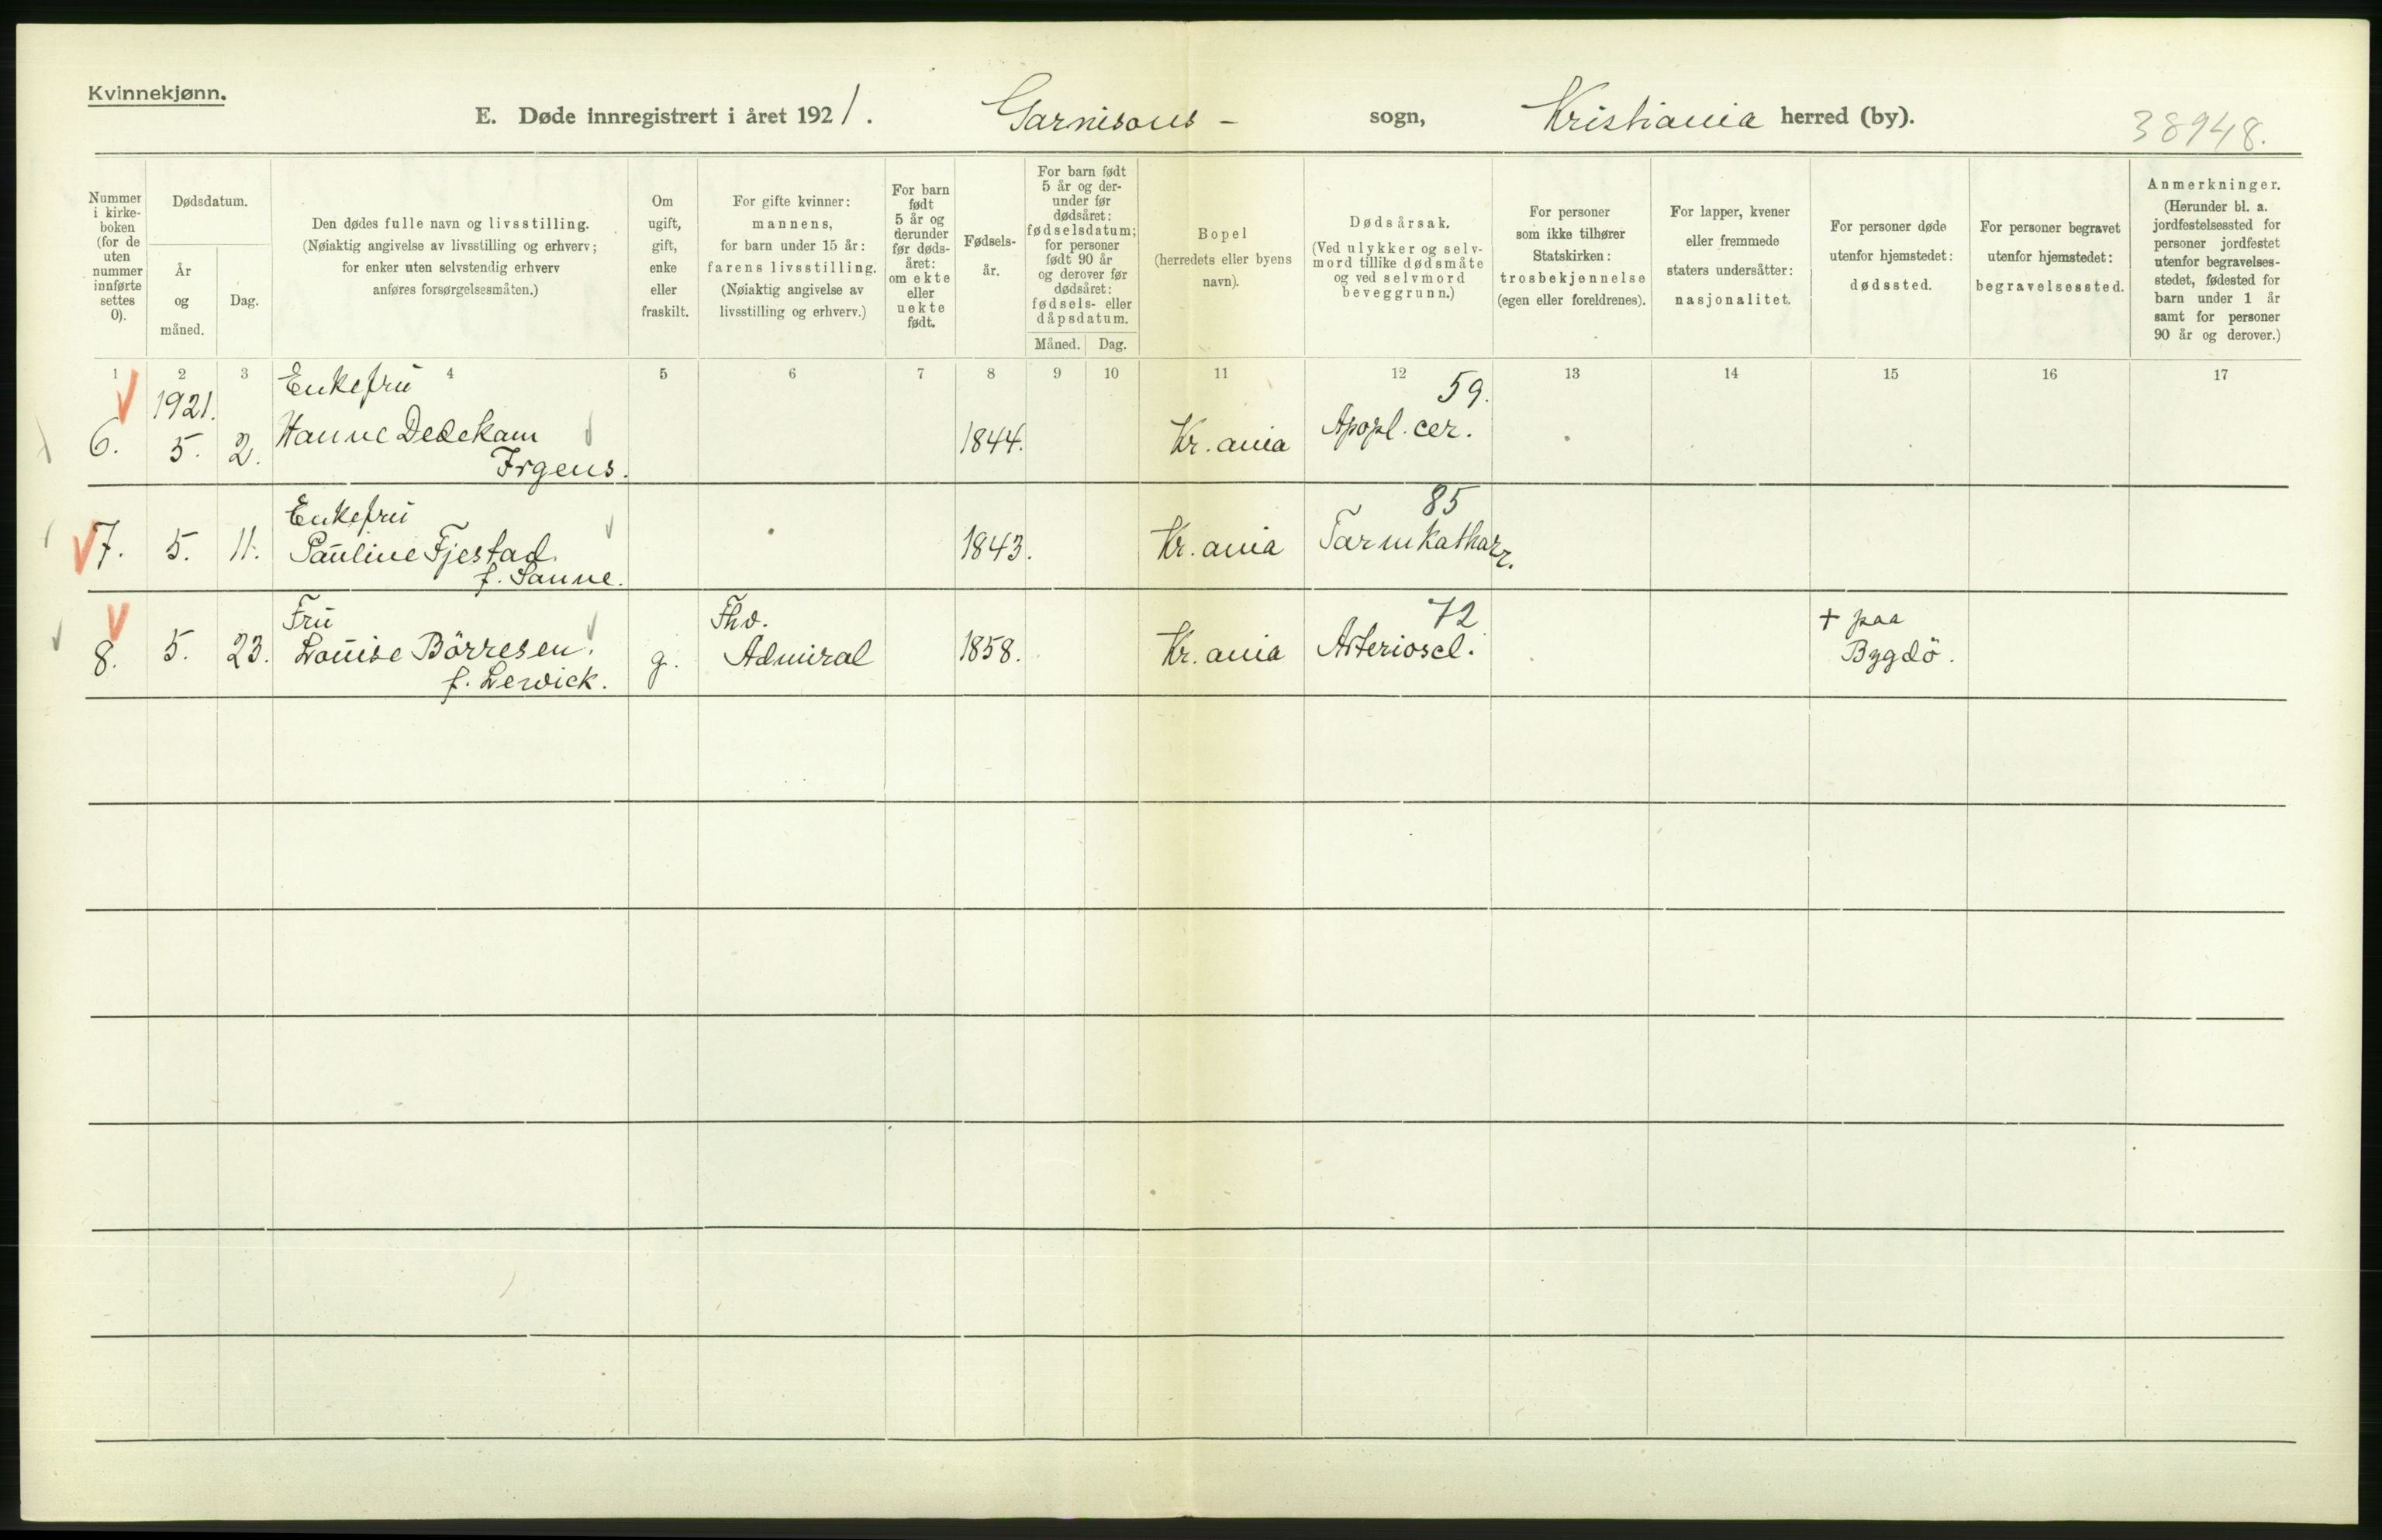 Kvinnekjønn.
E. Døde innregistrert i året 1921. Garnisons- sogn, Kristiania herred (by).
38948.
Nummer
i kirke-
boken
(for de
uten
nummer
innførte
settes
0).
Dødsdatum.
År
og
måned.
Dag.
Den dødes fulle navn og livsstilling.
(Nøiaktig angivelse av livsstilling og erhverv;
for enker uten selvstendig erhverv
anføres forsørgelsesmåten.)
Om
ugift,
gift,
enke
eller
fraskilt.
For gifte kvinner:
mannens,
for barn under 15 år:
farens livsstilling.
(Nøiaktig angivelse av
livsstilling og erhverv.)
For barn
født
5 år og
derunder
før døds-
året:
om ekte
eller
uekte
født.
Fødsels-
år.
For barn født
5 år og der-
under før
dødsåret:
fødselsdatum;
for personer
født 90 år
og derover før
dødsåret:
fødsels- eller
dåpsdatum.
Måned. Dag.
Bopel
(herredets eller byens
navn).
Dødsårsak.
(Ved ulykker og selv-
mord tillike dødsmåte
og ved selvmord
beveggrunn.)
For personer
som ikke tilhører
Statskirken:
trosbekjennelse
(egen eller foreldrenes).
For lapper, kvener
eller fremmede
staters undersåtter:
nasjonalitet.
For personer døde
utenfor hjemstedet:
dødssted.
For personer begravet
utenfor hjemstedet:
begravelsessted.
Anmerkninger.
(Herunder bl. a.
jordfestelsessted for
personer jordfestet
utenfor begravelses-
stedet, fødested for
barn under 1 år
samt for personer
90 år og derover.)
1 2 3 4 5 6 7 8 9 10 11 12 13 14 15 16 17
1921. Enkefru 59.
6. 5. 2. Hanne Dedekam 1844. Kr.ania Apopl. cer.
Irgens.
Enkefru 85
7. 5. 11. Pauline Fjestad 1843. Kr.ania Tarmkatharr.
f. Sanne.
Fru Fhv. 72 + paa
8. 5. 23. Louise Börresen. g. Admiral 1858. Kr.ania Arterioscl. Bygdö.
f. Lewick.